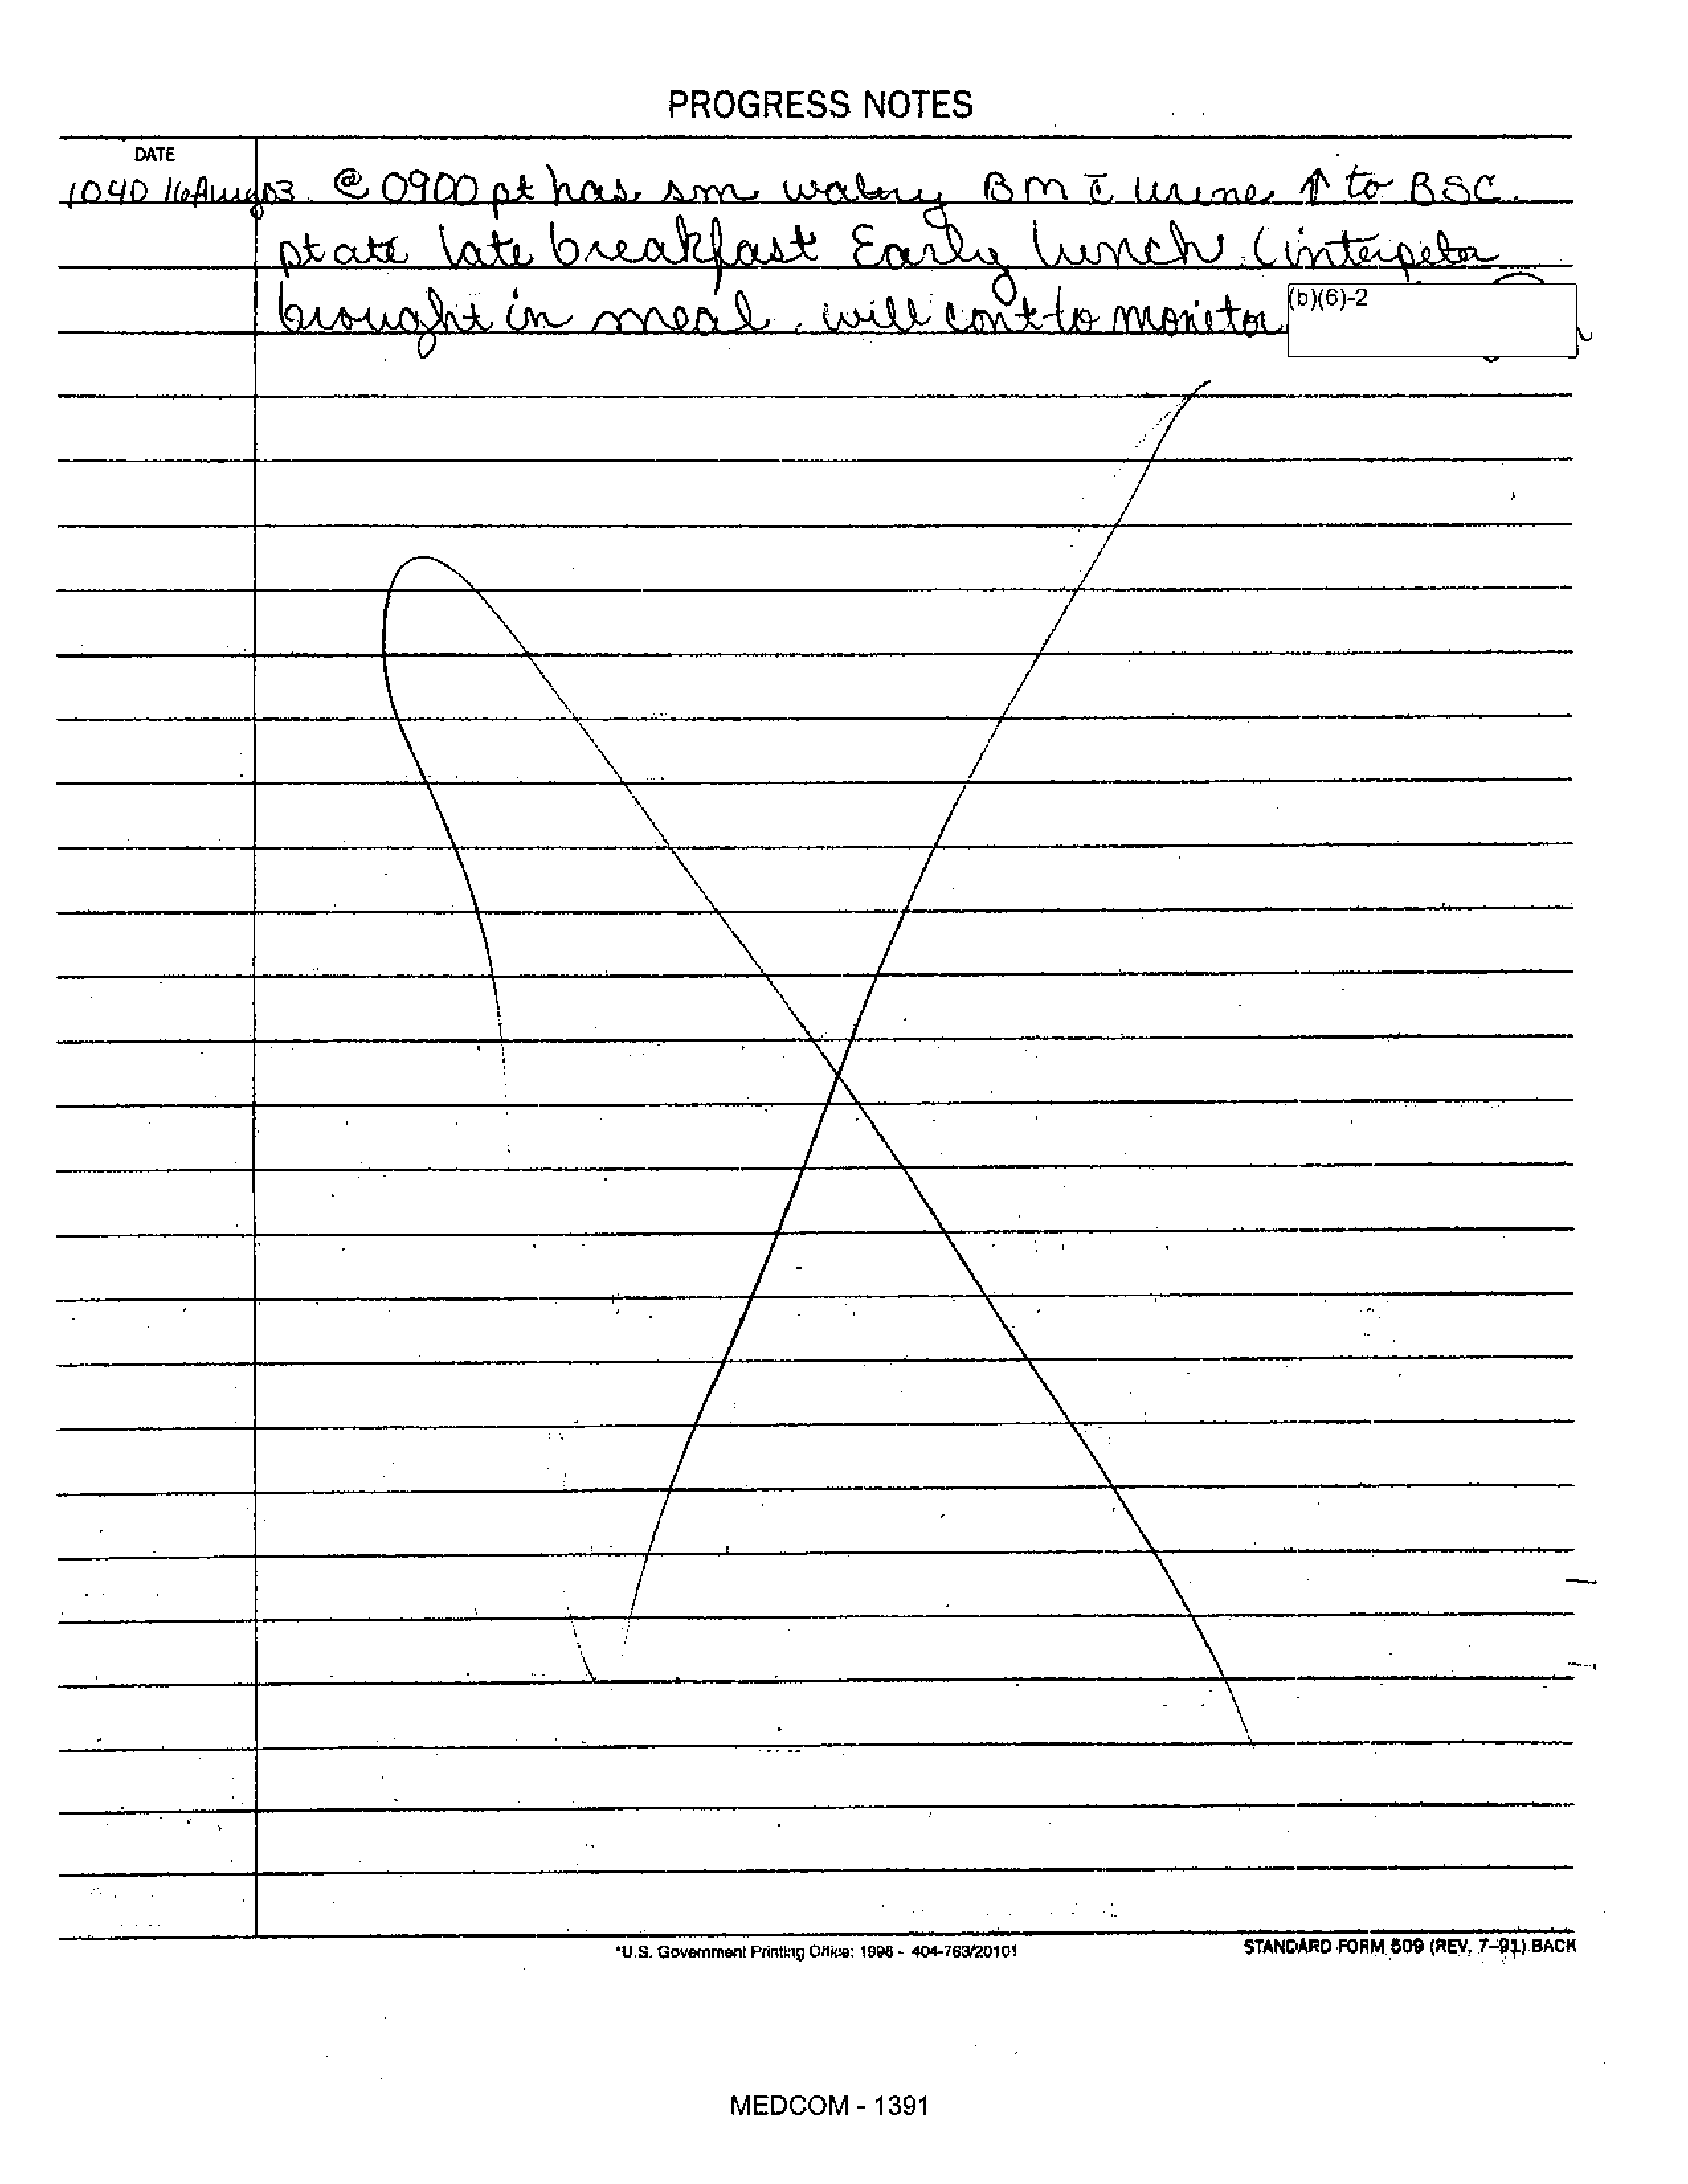 PROGRESS NOTES
DATE
1040 16Aug03 @ 0900 pt has sm watery BM c̄ urine ↑ to BSC.
pt ate late breakfast Early lunch (interpeter
brought in meal. will cont to monitor (b)(6)-2
*U.S. Government Printing Office: 1996 - 404-763/20101
STANDARD FORM 509 (REV. 7-91) BACK
MEDCOM - 1391